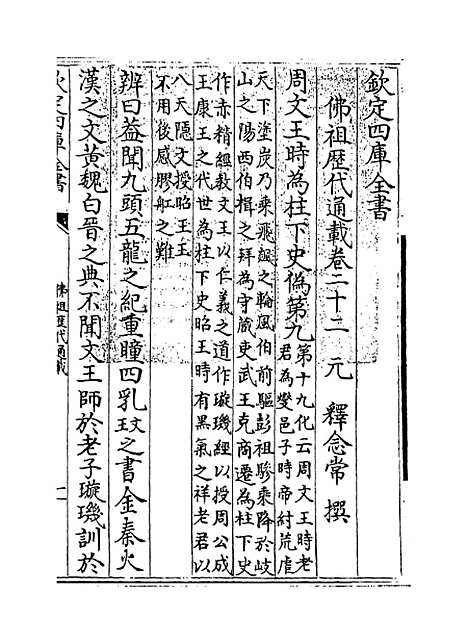 欽定四庫全書
佛祖歷代通載卷二十二 元 釋念常 撰
周文王時為柱下史僞第九 第十九化云周文王時老
君為爕邑子時帝紂荒虐
天下塗炭乃乘飛飇之輪風伯前驅彭祖驂乘降於岐
山之陽西伯揖之拜為守藏史武王克商遷為柱下史
作赤精經教文王以仁義之道作璇璣經以授周公成
王康王之代世為柱下史昭王時有黑氣之祥老君以
八天隱文授昭王王
不用後感膠舡之難
辨曰葢聞九頭五龍之紀重瞳四乳文王之書金秦火
漢之文黃魏白晉之典不聞文王師於老子璇璣訓於
欽定四庫全書
佛祖歷代通載